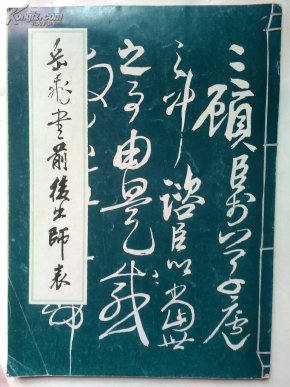 岳飛書前後出師表
三顧臣於草廬
之中諮臣以當世
之事由是感
Kongfz.com